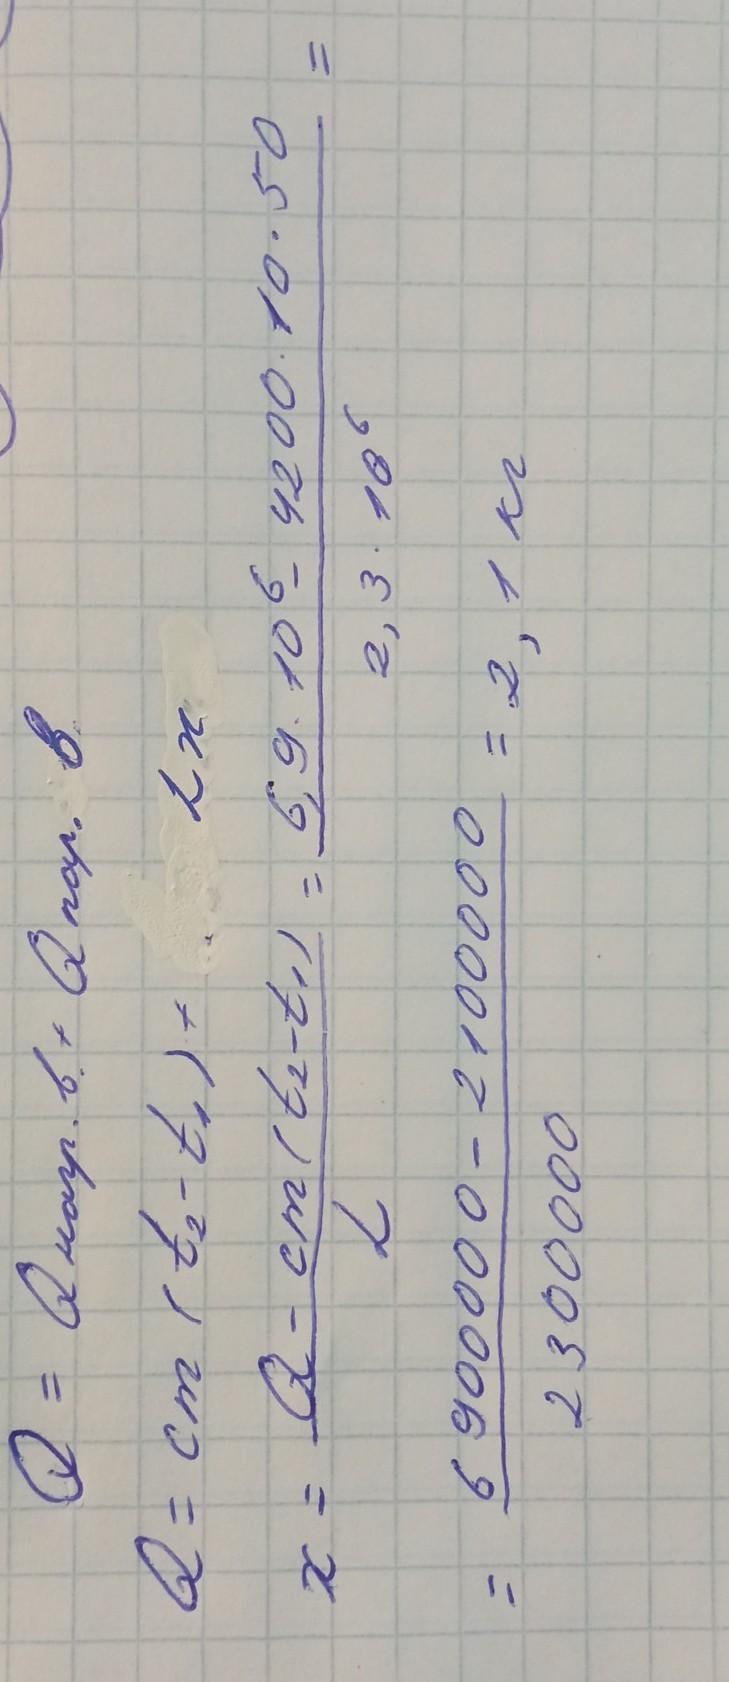 Q = Q нагр. в. + Q пар. в.
Q = cm(t₂-t₁) + Lx
x = (Q - cm(t₂-t₁))/L = (6,9·10⁶ - 4200·10·50)/(2,3·10⁶) =
= (6900000 - 2100000)/2300000 = 2,1 кг